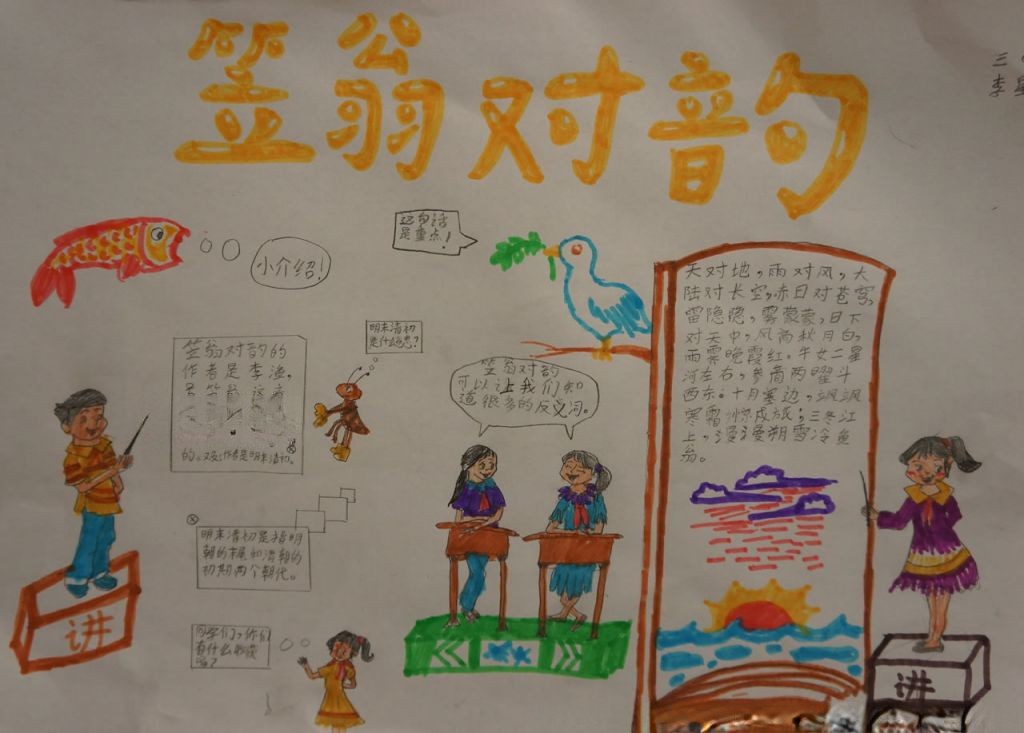 笠翁对韵
三
李
这句话
是重点！
小介绍！
天对地，雨对风，大
陆对长空，赤日对苍穹，
雷隐隐，雾蒙蒙，日下
对天中，风高秋月白，
雨霁晚霞红。牛女二星
河左右，参商两曜斗
西东。十月塞边，飒飒
寒霜惊戍旅；三冬江
上，漫漫朔雪冷鱼
翁。
明末清初
是什么意思？
笠翁对韵的
作者是李渔，
的。对韵作者是明末清初。
笠翁对韵
可以让我们知
道很多的反义词。
明末清初是指明
朝的末尾和清朝的
初期两个朝代。
同学们，你们
有什么收获
吗？
讲
讲